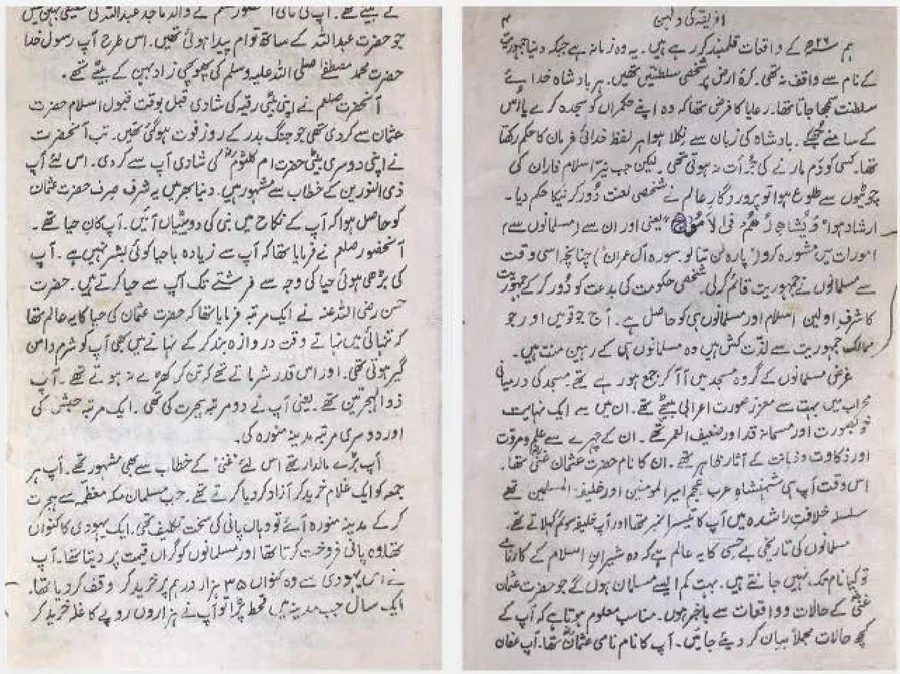 ۴
افریقہ کی دلہن
ہم ۲۶ھ کے واقعات قلمبند کر رہے ہیں۔ یہ وہ زمانہ ہے جبکہ دنیا جمہوریت
کے نام سے واقف نہ تھی۔ کرۂ ارض پر شخصی سلطنتیں تھیں۔ ہر بادشاہ خدائے
سلطنت سمجھا جاتا تھا۔ رعایا کا فرض تھا کہ وہ اپنے حکمراں کو سجدہ کرے یا اس
کے سامنے جھکے۔ بادشاہ کی زبان سے نکلا ہوا ہر لفظ خدائی فرمان کا حکم رکھتا
تھا۔ کسی کو دم مارنے کی جرأت نہ ہوتی تھی۔ لیکن جب نیّر اسلام فاران کی
چوٹیوں سے طلوع ہوا تو پروردگار عالم نے شخصی لعنت دُور کرنیکا حکم دیا۔
ارشاد ہوا " فی الامر " یعنی اور ان سے (مسلمانوں سے)
امورات میں مشورہ کرو (پارہ لن تنالو۔ سورہ آل عمران) چنانچہ اسی وقت
سے مسلمانوں نے جمہوریت قائم کرلی۔ شخصی حکومت کی بدعت کو دُور کر کے جمہوریت
کا شرفِ اولین اسلام اور مسلمانوں ہی کو حاصل ہے۔ آج جو قومیں اور جو
ممالک جمہوریت سے لذت کش ہیں وہ مسلمانوں ہی کے رہین منت ہیں۔
غرض مسلمانوں کے گروہ مسجد میں آ آ کر جمع ہو رہے تھے۔ مسجد کی درمیانی
محراب میں بہت سے معزز صورت اعرابی بیٹھے تھے۔ ان میں سے ایک نہایت
خوبصورت اور میانہ قد اور ضعیف العمر تھے۔ ان کے چہرے سے علم و مروت
اور ذکاوت و ذہانت کے آثار ظاہر تھے۔ ان کا نام حضرت عثمان غنیؓ تھا۔
اس وقت آپ ہی شہنشاہِ عرب و عجم امیر المومنین اور خلیفۃ المسلمین تھے
سلسلہ خلافتِ راشدہ میں آپ کا تیسرا نمبر تھا اور آپ خلیفہ سوئم کہلاتے تھے۔
مسلمانوں کی تاریخی بے حسی کا یہ عالم ہے کہ وہ شیران اسلام کے کارنامے
تو کیا نام تک نہیں جانتے ہیں۔ بہت کم ایسے مسلمان ہوں گے جو حضرت عثمان
غنیؓ کے حالات و واقعات سے باخبر ہوں۔ مناسب معلوم ہوتا ہے کہ آپ کے
کچھ حالات مجملاً بیان کر دیئے جائیں۔ آپ کا نام نامی عثمانؓ تھا۔ آپ عفان
کے بیٹے تھے۔ آپ کی نانی آنحضور صلعم کے والد ماجد عبداللہ کی حقیقی بہن تھیں
جو حضرت عبداللہ کے ساتھ توام پیدا ہوئی تھیں۔ اس طرح آپ رسول خدا
حضرت محمد مصطفےٰ صلی اللہ علیہ وسلم کی پھوپھی زاد بہن کے بیٹے تھے۔
آنحضرت صلعم نے اپنی بیٹی رقیہ کی شادی قبل بوقت قبول اسلام حضرت
عثمان سے کر دی تھی جو جنگ بدر کے روز فوت ہو گئی تھیں۔ تب آنحضرت
نے اپنی دوسری بیٹی حضرت ام کلثومؓ کی شادی آپ سے کر دی۔ اس لئے آپ
ذی النورین کے خطاب سے مشہور ہیں۔ دنیا بھر میں یہ شرف صرف حضرت عثمان
کو حاصل ہوا کہ آپ کے نکاح میں نبی کی دو بیٹیاں آئیں۔ آپ کان حیا تھے۔
آنحضور صلعم نے فرمایا تھا کہ آپ سے زیادہ با حیا کوئی بشر نہیں ہے۔ آپ
کی بڑھی ہوئی حیا کی وجہ سے فرشتے تک آپ سے حیا کرتے ہیں۔ حضرت
حسن رضی اللہ عنہ نے ایک مرتبہ فرمایا تھا کہ حضرت عثمان کی حیا کا یہ عالم تھا
کہ تنہائی میں نہاتے وقت دروازہ بند کر کے نہانے میں بھی آپ کو شرم دامن
گیر ہوتی تھی۔ اور اس قدر شرماتے تھے کہ تن کر کھڑے نہ ہوتے تھے۔ آپ
ذوالہجرتین تھے۔ یعنی آپ نے دو مرتبہ ہجرت کی تھی۔ ایک مرتبہ حبش کی
اور دوسری مرتبہ مدینہ منورہ کی۔
آپ بڑے مالدار تھے اس لئے 'غنی' کے خطاب سے بھی مشہور تھے۔ آپ ہر
جمعہ کو ایک غلام خرید کر آزاد کر دیا کرتے تھے۔ جب مسلمان مکہ معظمہ سے ہجرت
کر کے مدینہ منورہ آئے تو وہاں پانی کی سخت تکلیف تھی۔ ایک یہودی کا کنواں
تھا وہ پانی فروخت کرتا تھا اور مسلمانوں کو گراں قیمت پر دیتا تھا۔ آپ
نے اس یہودی سے وہ کنواں ۳۵ ہزار درہم پر خرید کر وقف کر دیا تھا۔
ایک سال جب مدینہ میں قحط پڑا تو آپ نے ہزاروں روپے کا غلہ خرید کر